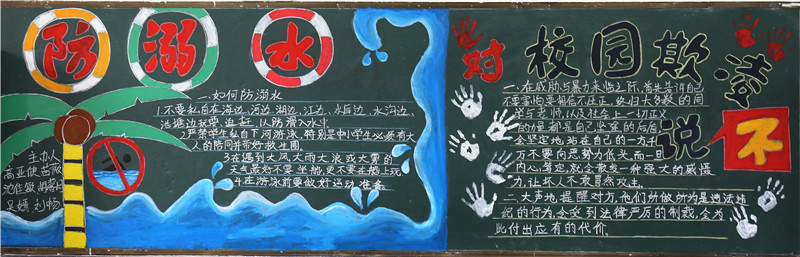 防溺水
一.如何防溺水
1.不要私自在海边、河边、湖边、江边、水库边、水沟边、
池塘边玩耍、追赶,以防滑入水中
2.严禁学生私自下河游泳,特别是中小学生必须有大
人的陪同并带好救生圈
3.在遇到大风大雨大浪或大雾的
天气最好不要坐船,更不要在船上玩
4.在游泳前要做好运动准备
主办人
吴娟
对校园欺凌说不
一.在威胁与暴力来临之际,首先告诉自己
不要害怕要相信邪不压正,终归大多数的同
学与老师,以及社会上一切正义
的力量都是自己坚定的后盾
会坚定地站在自己的一方千
万不要向恶势力低头,而一旦
内心笃定,就会散发一种强大的威慑
力,让坏人不敢贸然攻击。
二.大声地提醒对方,他们所做所为是违法违
纪的行为,会受到法律严厉的制裁,会为
此付出应有的代价.